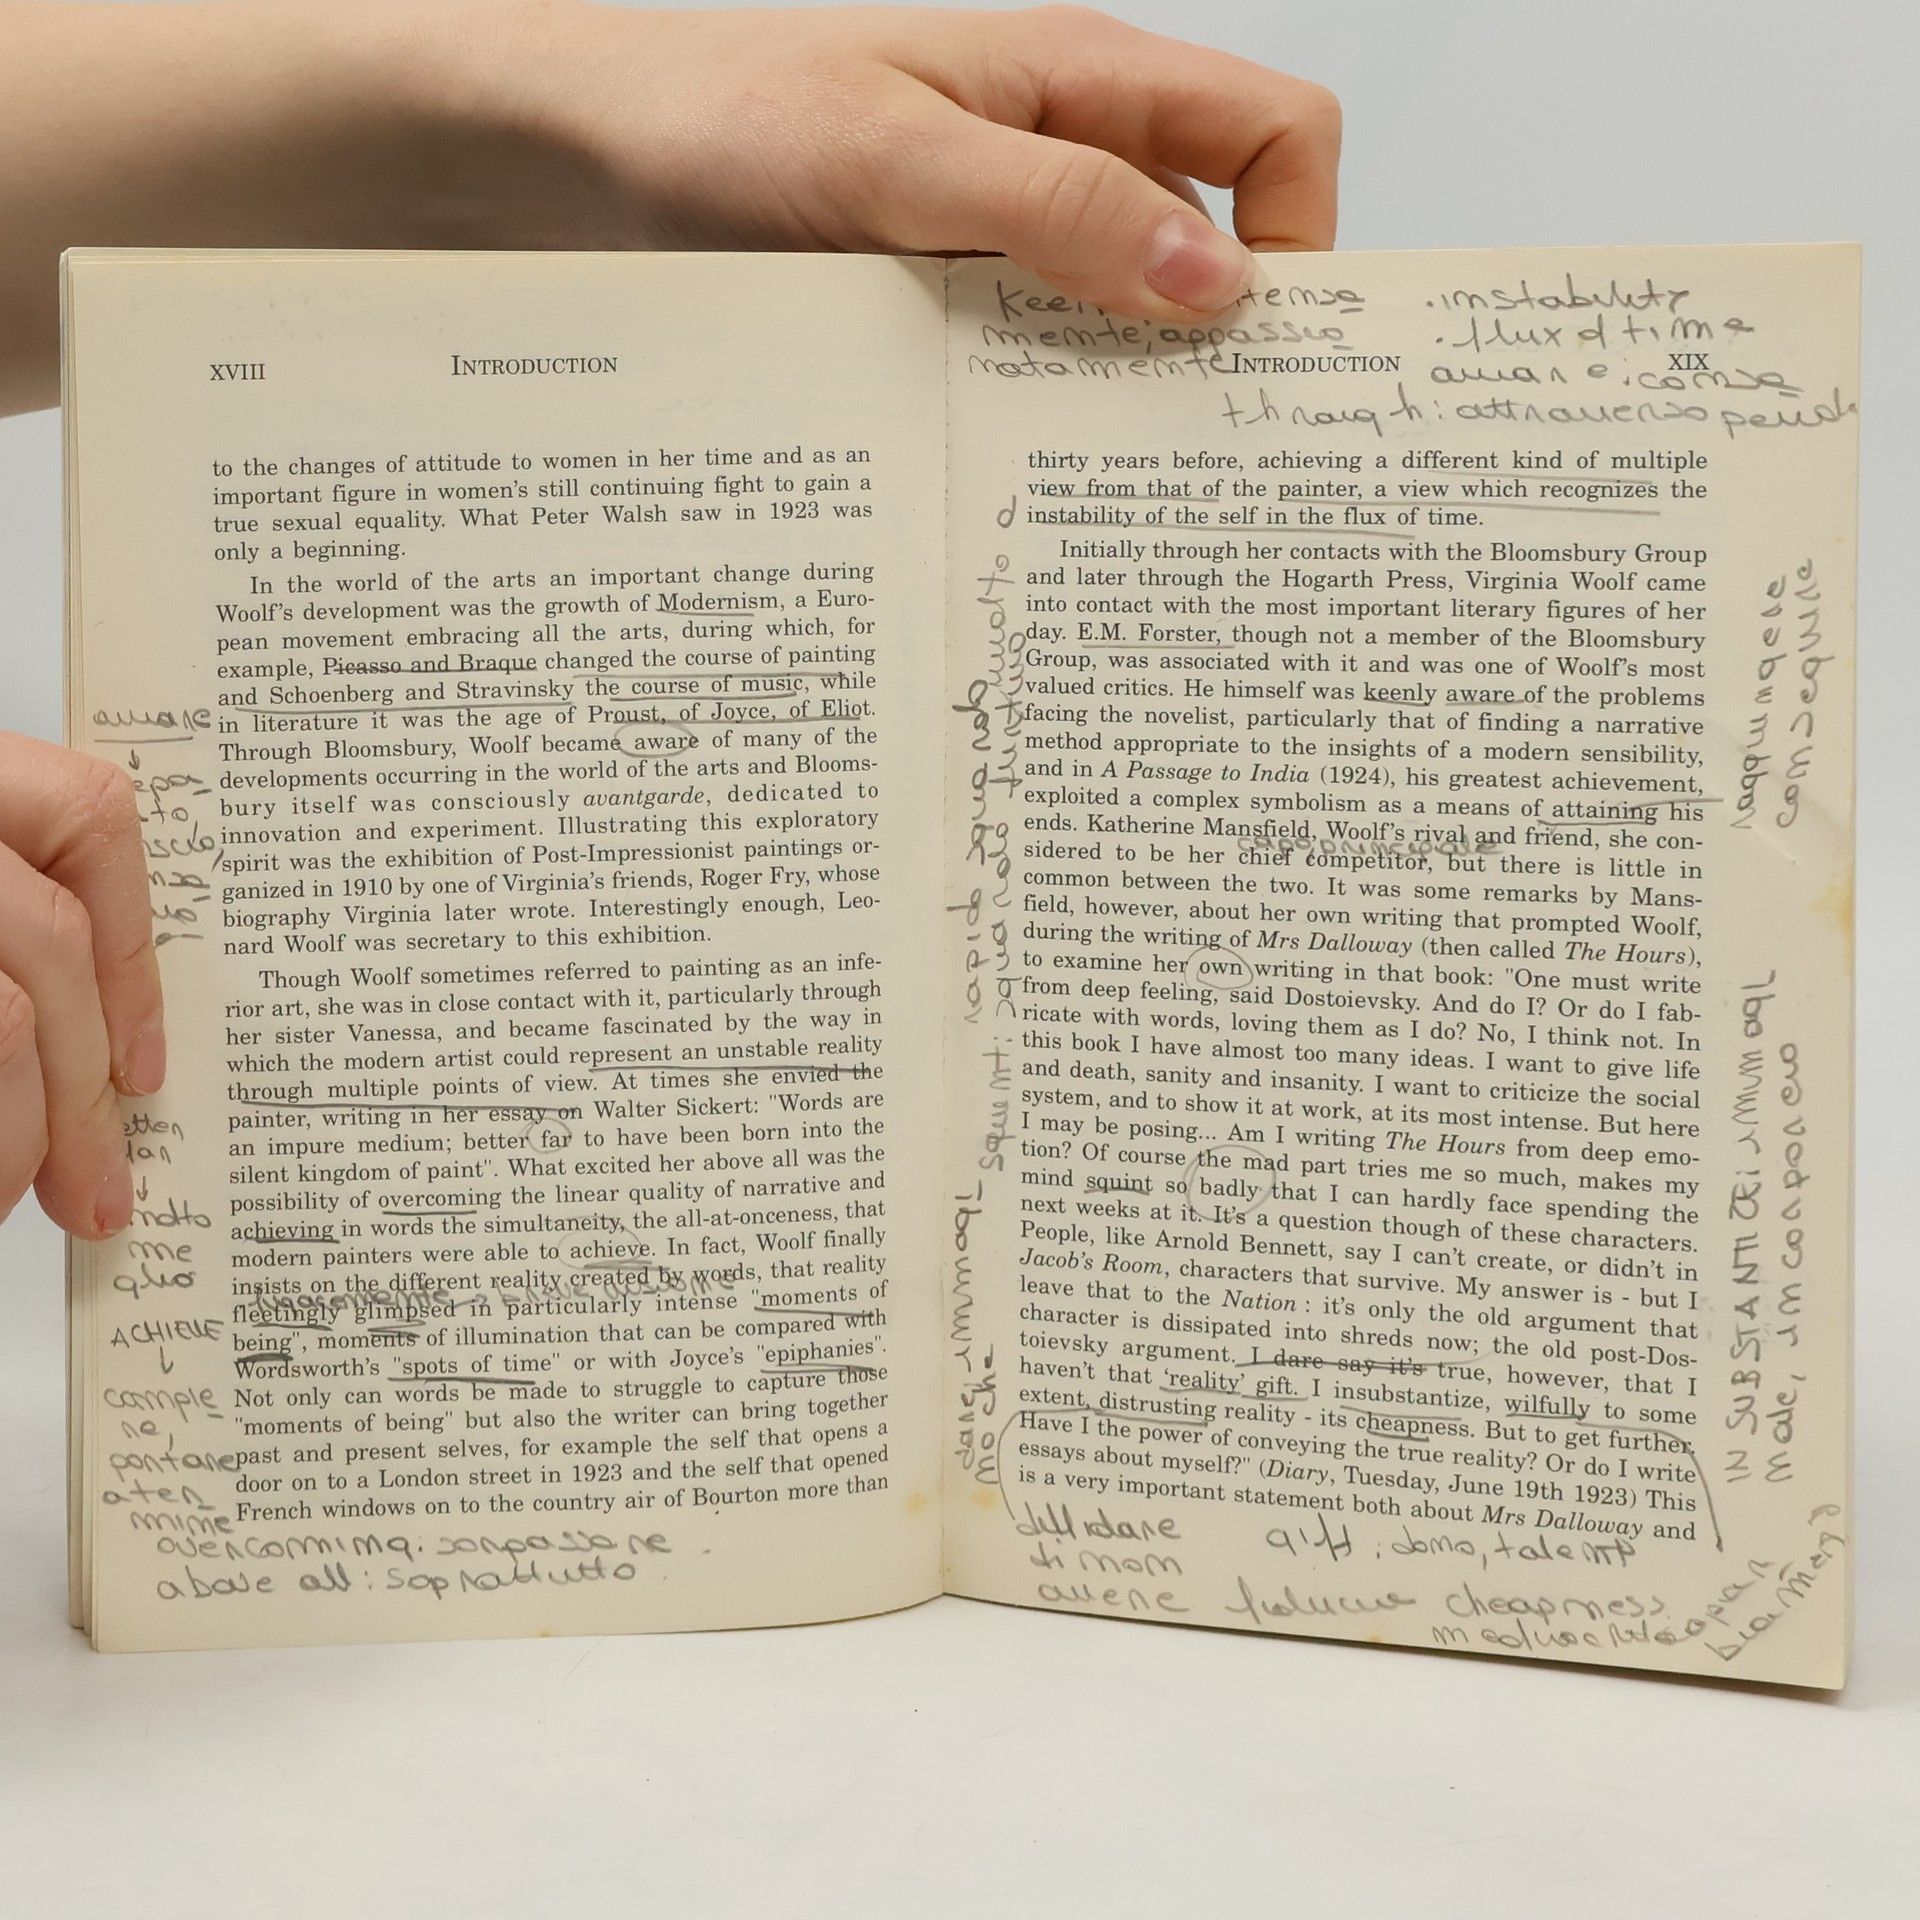 XVIII INTRODUCTION
to the changes of attitude to women in her time and as an
important figure in women's still continuing fight to gain a
true sexual equality. What Peter Walsh saw in 1923 was
only a beginning.
In the world of the arts an important change during
Woolf's development was the growth of Modernism, a Euro-
pean movement embracing all the arts, during which, for
example, Picasso and Braque changed the course of painting
and Schoenberg and Stravinsky the course of music, while
in literature it was the age of Proust, of Joyce, of Eliot.
Through Bloomsbury, Woolf became aware of many of the
developments occurring in the world of the arts and Blooms-
bury itself was consciously avantgarde, dedicated to
innovation and experiment. Illustrating this exploratory
spirit was the exhibition of Post-Impressionist paintings or-
ganized in 1910 by one of Virginia's friends, Roger Fry, whose
biography Virginia later wrote. Interestingly enough, Leo-
nard Woolf was secretary to this exhibition.
Though Woolf sometimes referred to painting as an infe-
rior art, she was in close contact with it, particularly through
her sister Vanessa, and became fascinated by the way in
which the modern artist could represent an unstable reality
through multiple points of view. At times she envied the
painter, writing in her essay on Walter Sickert: "Words are
an impure medium; better far to have been born into the
silent kingdom of paint". What excited her above all was the
possibility of overcoming the linear quality of narrative and
achieving in words the simultaneity, the all-at-onceness, that
modern painters were able to achieve. In fact, Woolf finally
insists on the different reality created by words, that reality
fleetingly glimpsed in particularly intense "moments of
being", moments of illumination that can be compared with
Wordsworth's "spots of time" or with Joyce's "epiphanies".
Not only can words be made to struggle to capture those
"moments of being" but also the writer can bring together
past and present selves, for example the self that opens a
door on to a London street in 1923 and the self that opened
French windows on to the country air of Bourton more than
aware
me
glio
ACHIEVE
compie
re,
portare
a ter
mine
overcoming: sorpassare
above all: soprattutto
mente; appassio
natamente
.instability
.flux of time
aware: consa
through: attraverso
INTRODUCTION XIX
thirty years before, achieving a different kind of multiple
view from that of the painter, a view which recognizes the
instability of the self in the flux of time.
Initially through her contacts with the Bloomsbury Group
and later through the Hogarth Press, Virginia Woolf came
into contact with the most important literary figures of her
day. E.M. Forster, though not a member of the Bloomsbury
Group, was associated with it and was one of Woolf's most
valued critics. He himself was keenly aware of the problems
facing the novelist, particularly that of finding a narrative
method appropriate to the insights of a modern sensibility,
and in A Passage to India (1924), his greatest achievement,
exploited a complex symbolism as a means of attaining his
ends. Katherine Mansfield, Woolf's rival and friend, she con-
capo, principale
sidered to be her chief competitor, but there is little in
common between the two. It was some remarks by Mans-
field, however, about her own writing that prompted Woolf,
during the writing of Mrs Dalloway (then called The Hours),
to examine her own writing in that book: "One must write
from deep feeling, said Dostoievsky. And do I? Or do I fab-
ricate with words, loving them as I do? No, I think not. In
this book I have almost too many ideas. I want to give life
and death, sanity and insanity. I want to criticize the social
system, and to show it at work, at its most intense. But here
I may be posing... Am I writing The Hours from deep emo-
tion? Of course the mad part tries me so much, makes my
mind squint so badly that I can hardly face spending the
next weeks at it. It's a question though of these characters.
People, like Arnold Bennett, say I can't create, or didn't in
Jacob's Room, characters that survive. My answer is - but I
leave that to the Nation : it's only the old argument that
character is dissipated into shreds now; the old post-Dos-
toievsky argument. I dare say it's true, however, that I
haven't that 'reality' gift. I insubstantize, wilfully to some
extent, distrusting reality - its cheapness. But to get further.
Have I the power of conveying the true reality? Or do I write
essays about myself?" (Diary, Tuesday, June 19th 1923) This
is a very important statement both about Mrs Dalloway and
raggiungere
conseguire
male, incorporeo
diffidare
di non
avere fiducia
gift: dono, talento
cheapness